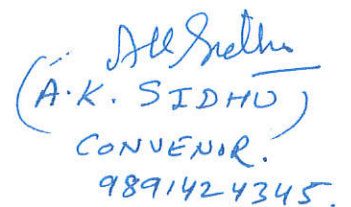 (A.K. SIDHU)
CONVENOR.
9891424345.